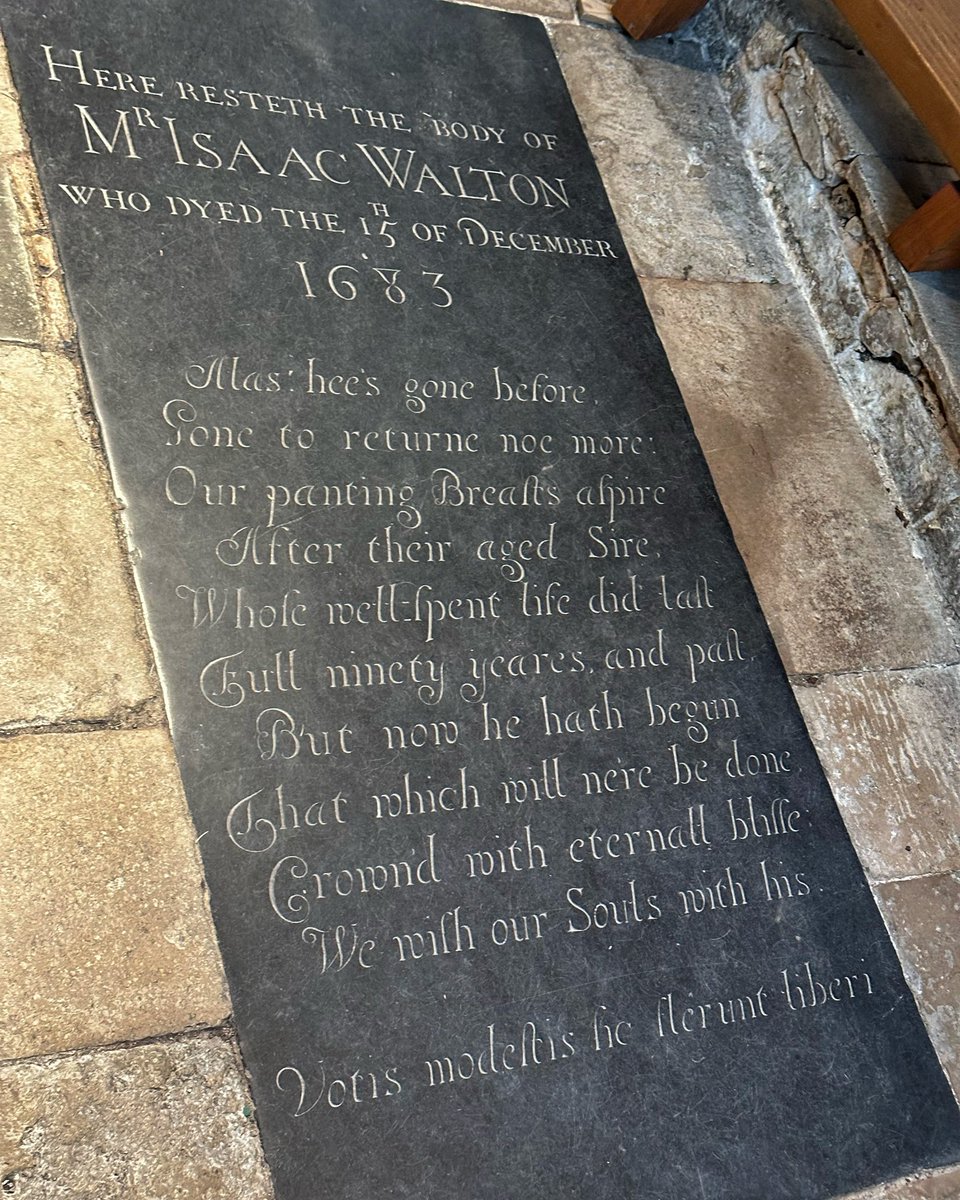 HERE RESTETH THE BODY OF
MR ISAAC WALTON
WHO DYED THE 15TH OF DECEMBER
1683
Alas! hee's gone before,
Gone to returne noe more:
Our panting Breaſts aſpire
After their aged Sire,
Whoſe well-ſpent life did laſt
Full ninety yeares, and paſt,
But now he hath begun
That which will ne're be done,
Crown'd with eternall bliſſe:
We wiſh our Souls with his.
Votis modeſtis ſic flerunt liberi